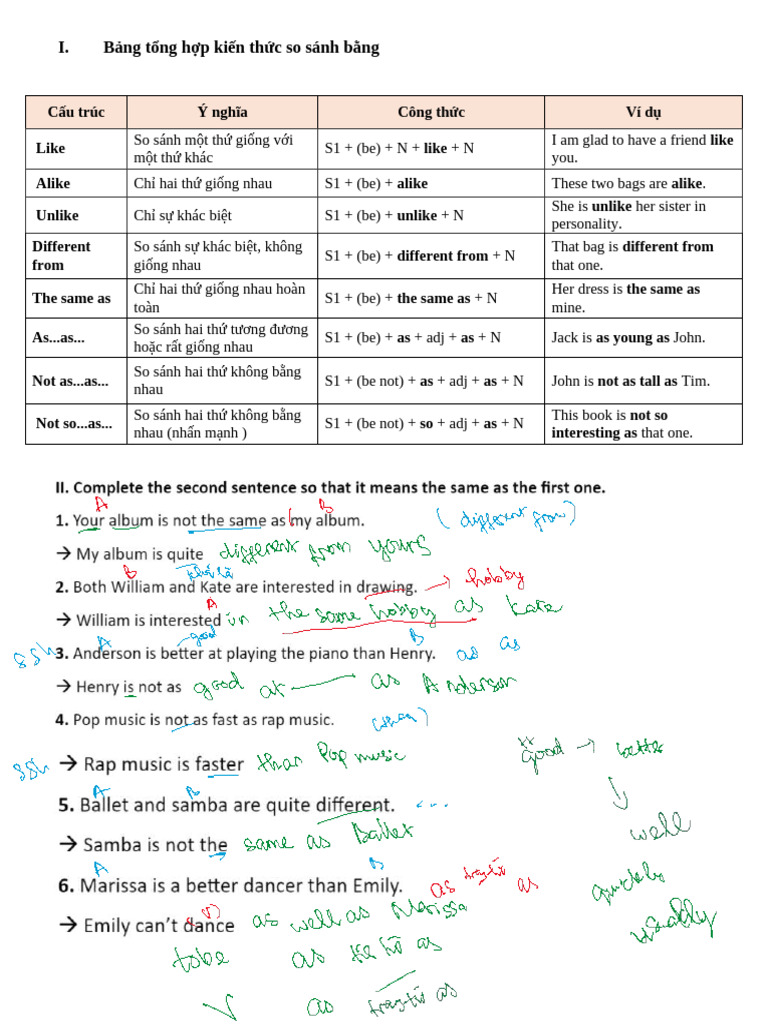 I. Bảng tổng hợp kiến thức so sánh bằng
Cấu trúc Ý nghĩa Công thức Ví dụ
Like So sánh một thứ giống với một thứ khác S1 + (be) + N + like + N I am glad to have a friend like you.
Alike Chỉ hai thứ giống nhau S1 + (be) + alike These two bags are alike.
Unlike Chỉ sự khác biệt S1 + (be) + unlike + N She is unlike her sister in personality.
Different from So sánh sự khác biệt, không giống nhau S1 + (be) + different from + N That bag is different from that one.
The same as Chỉ hai thứ giống nhau hoàn toàn S1 + (be) + the same as + N Her dress is the same as mine.
As...as... So sánh hai thứ tương đương hoặc rất giống nhau S1 + (be) + as + adj + as + N Jack is as young as John.
Not as...as... So sánh hai thứ không bằng nhau S1 + (be not) + as + adj + as + N John is not as tall as Tim.
Not so...as... So sánh hai thứ không bằng nhau (nhấn mạnh ) S1 + (be not) + so + adj + as + N This book is not so interesting as that one.
II. Complete the second sentence so that it means the same as the first one.
A B
1. Your album is not the same as my album. (different from)
→ My album is quite different from yours
B
2. Both William and Kate are interested in drawing. → hobby
A
→ William is interested in the same hobby as Kate
ssh A good B
3. Anderson is better at playing the piano than Henry. as as
→ Henry is not as good at as Anderson
4. Pop music is not as fast as rap music. (than)
ssh → Rap music is faster than Pop music good → better
A B
5. Ballet and samba are quite different. ...
→ Samba is not the same as Ballet well
A B
6. Marissa is a better dancer than Emily. as trạng từ as quickly
(V)
→ Emily can't dance as well as Marissa usually
tobe as as
V as trạng từ as